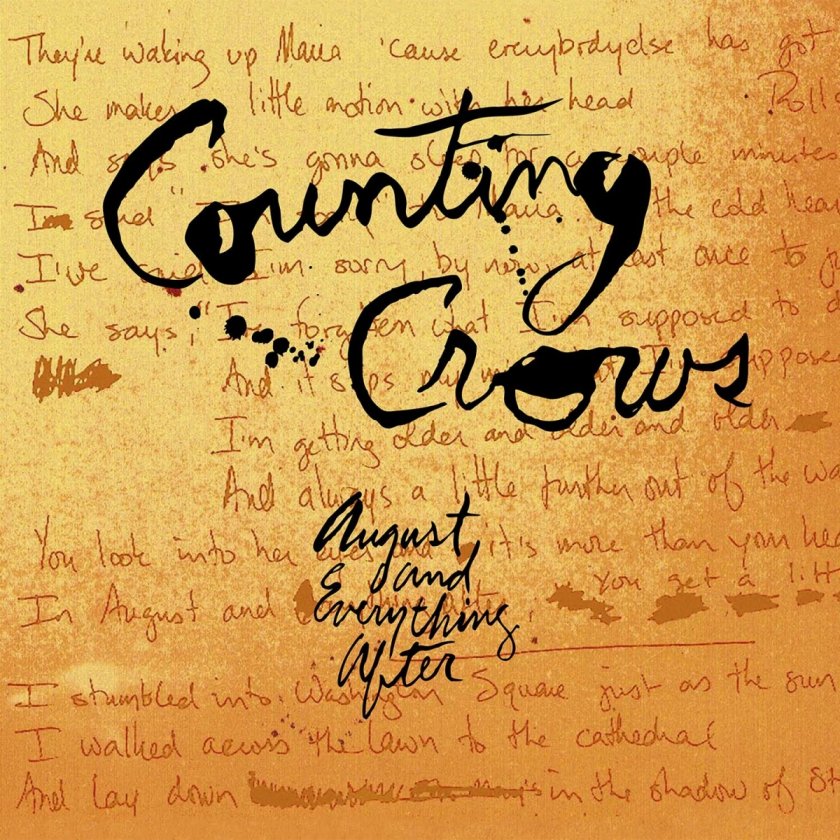 They're waking up Maria 'cause everybodyelse has got
She makes little motion with her head Roll
Counting
And says she's gonna sleep for a couple minutes
I'm said "I'm Maria the cold hear
I've said I'm sorry, by now, at last once to
Crows
She says, "I've forgotten what I'm supposed to
And it slips my I'm suppose
I'm getting older and older and older
And always a little further out of the wa
August
and
Everything
After
You look into her eyes and it's more than your hea
In August and You get a litt
I stumbled into Washington Square just as the sun
I walked across the lawn to the cathedral
And lay down in the shadow of St